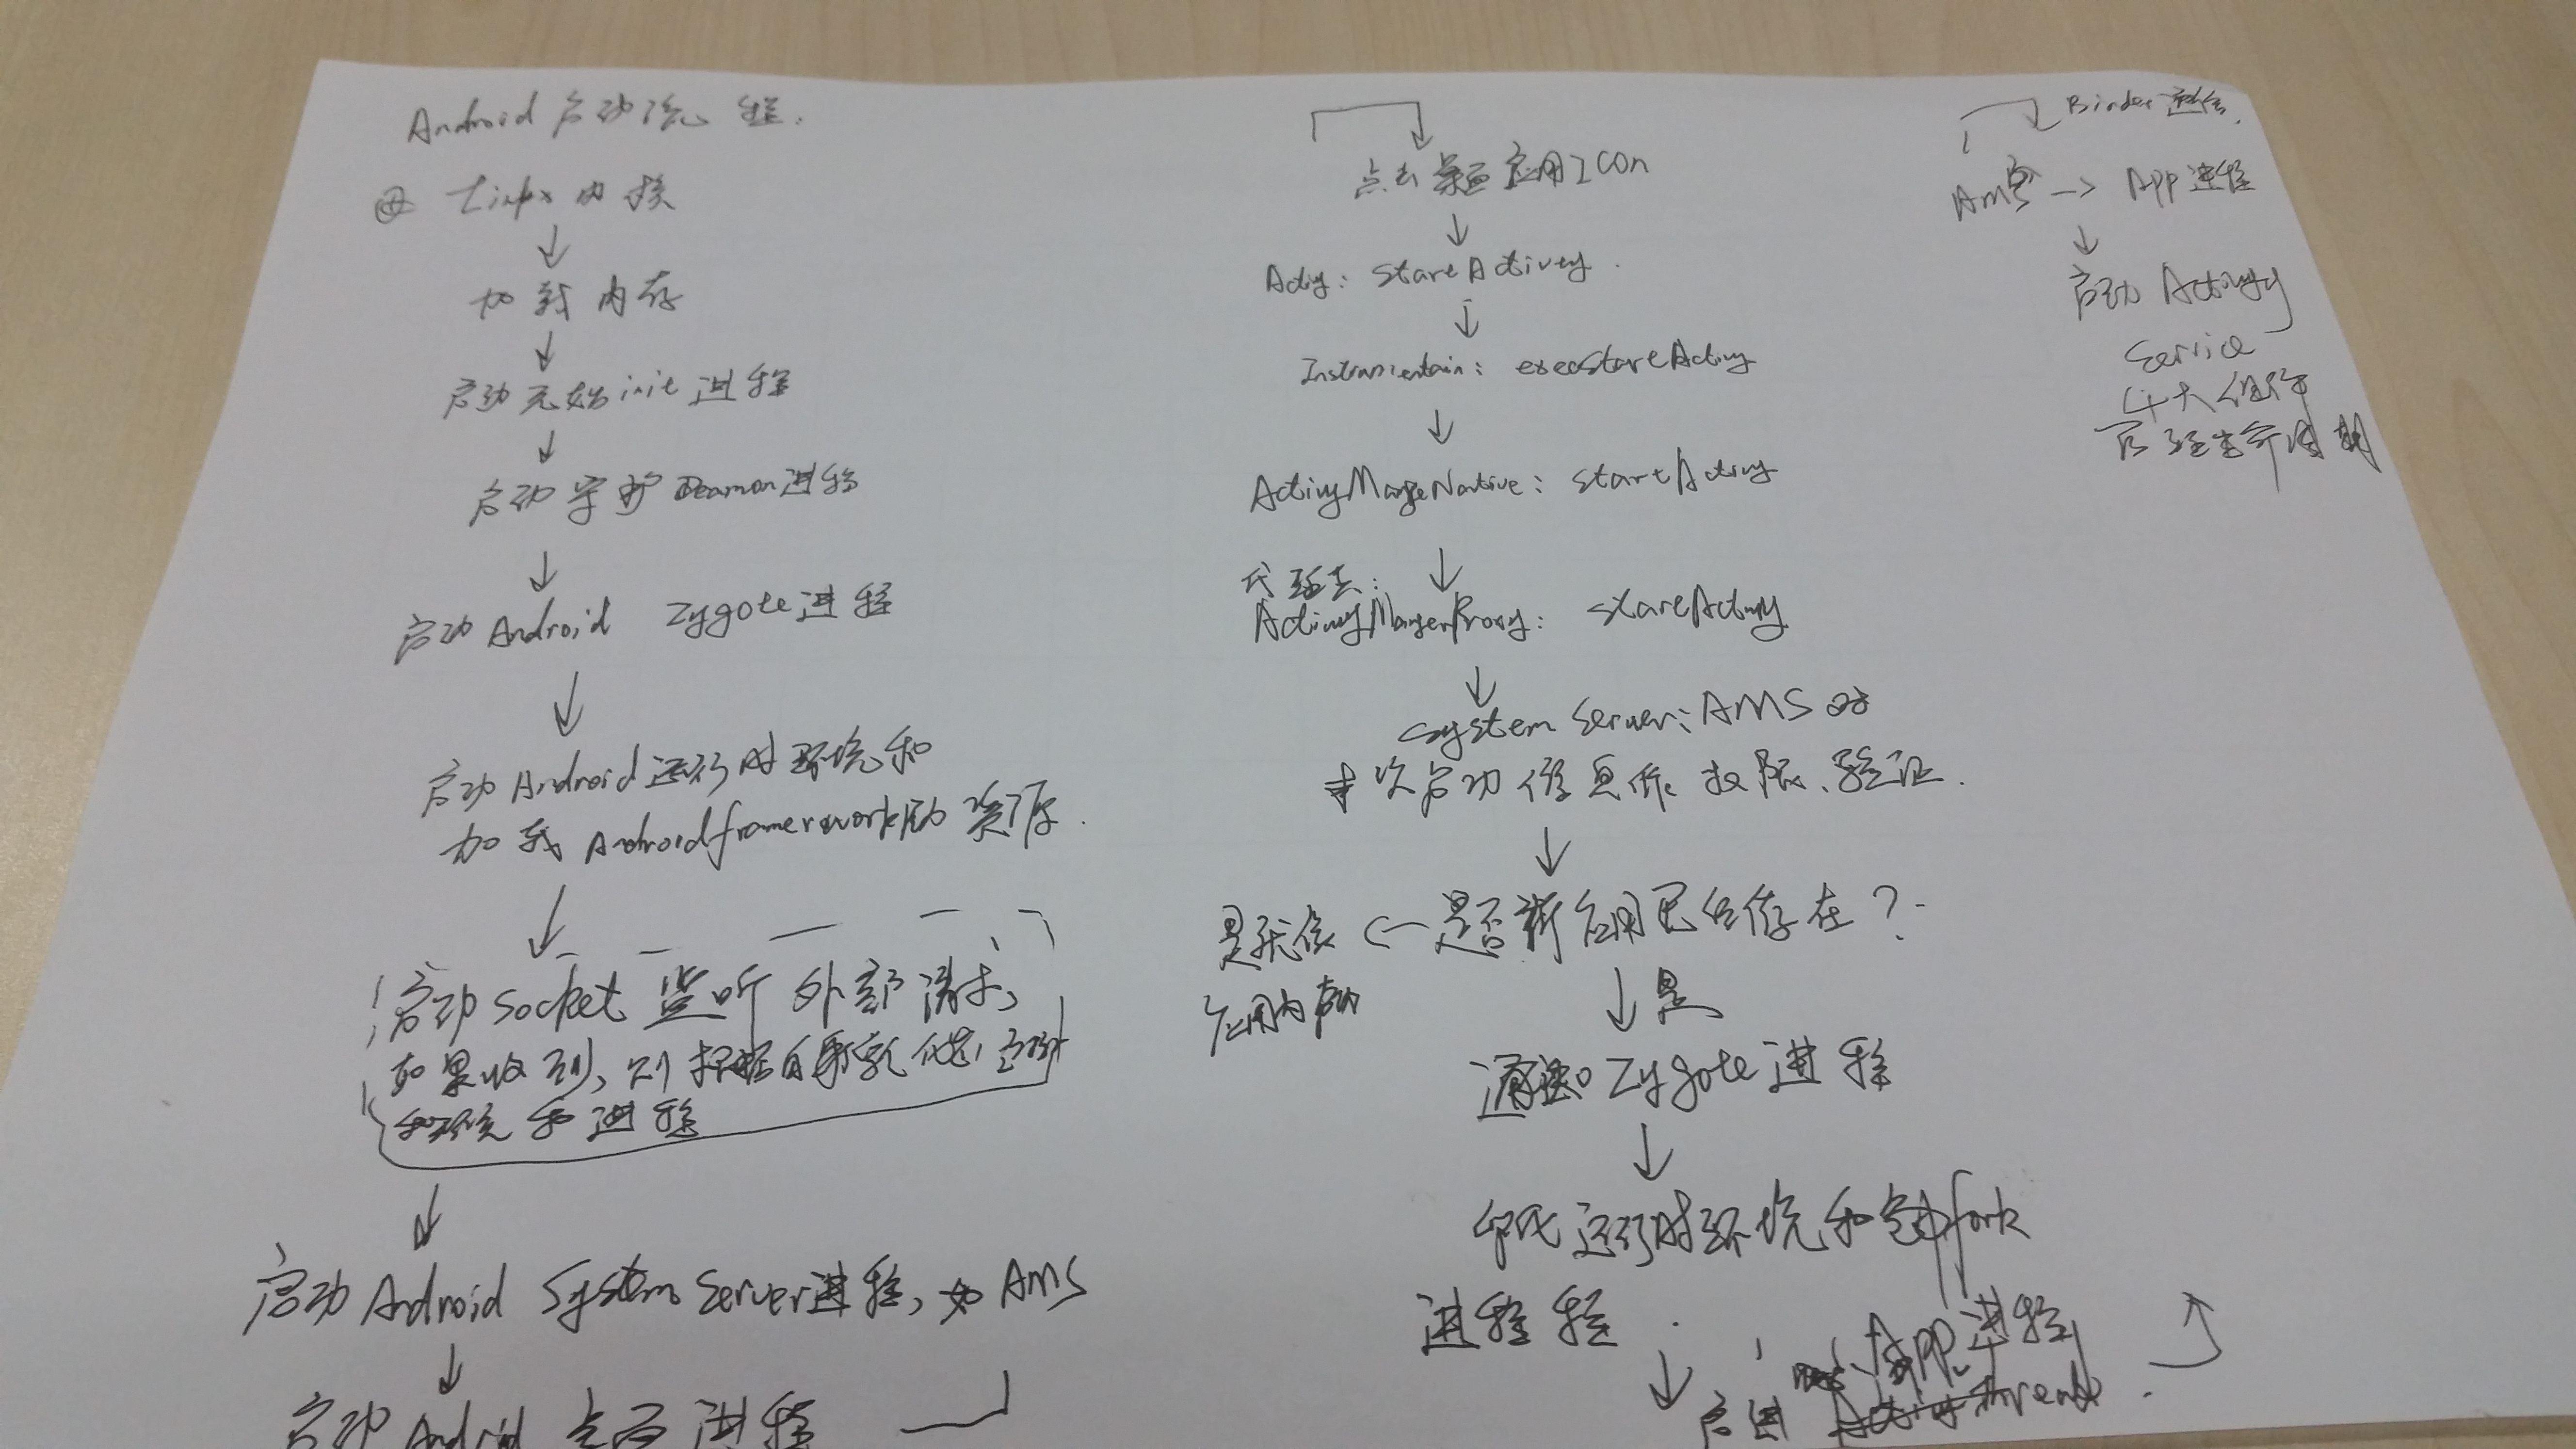 Android 启动流程.
Linux 内核
加载内存
启动元始init进程
启动守护Deamon进程
启动Android Zygote进程
启动Android运行时环境和
加载Androidframework 资源.
启动Socket 监听外部请求,
如果收到,则 自身
和进程
启动Android System Server进程,如AMS
启动Android 桌面进程
点击桌面应用Icon
Activity: startActivity.
Instrumentain: execstartActivity
ActivityManageNative: startActivity
代理类:
ActivityManagerProxy: startActivity
System Server: AMS 对
本次启动信息 权限、验证.
是否新应用已经存在?
是
应用内启动
通知Zygote进程
运行时环境和 fork
进程
App进程
Thread.
Binder 通信.
AMS -> App进程
启动 Activity
Service
四大组件
管理生命周期